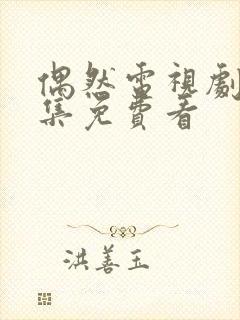 偶然雷視劇
集免費看
洪善玉